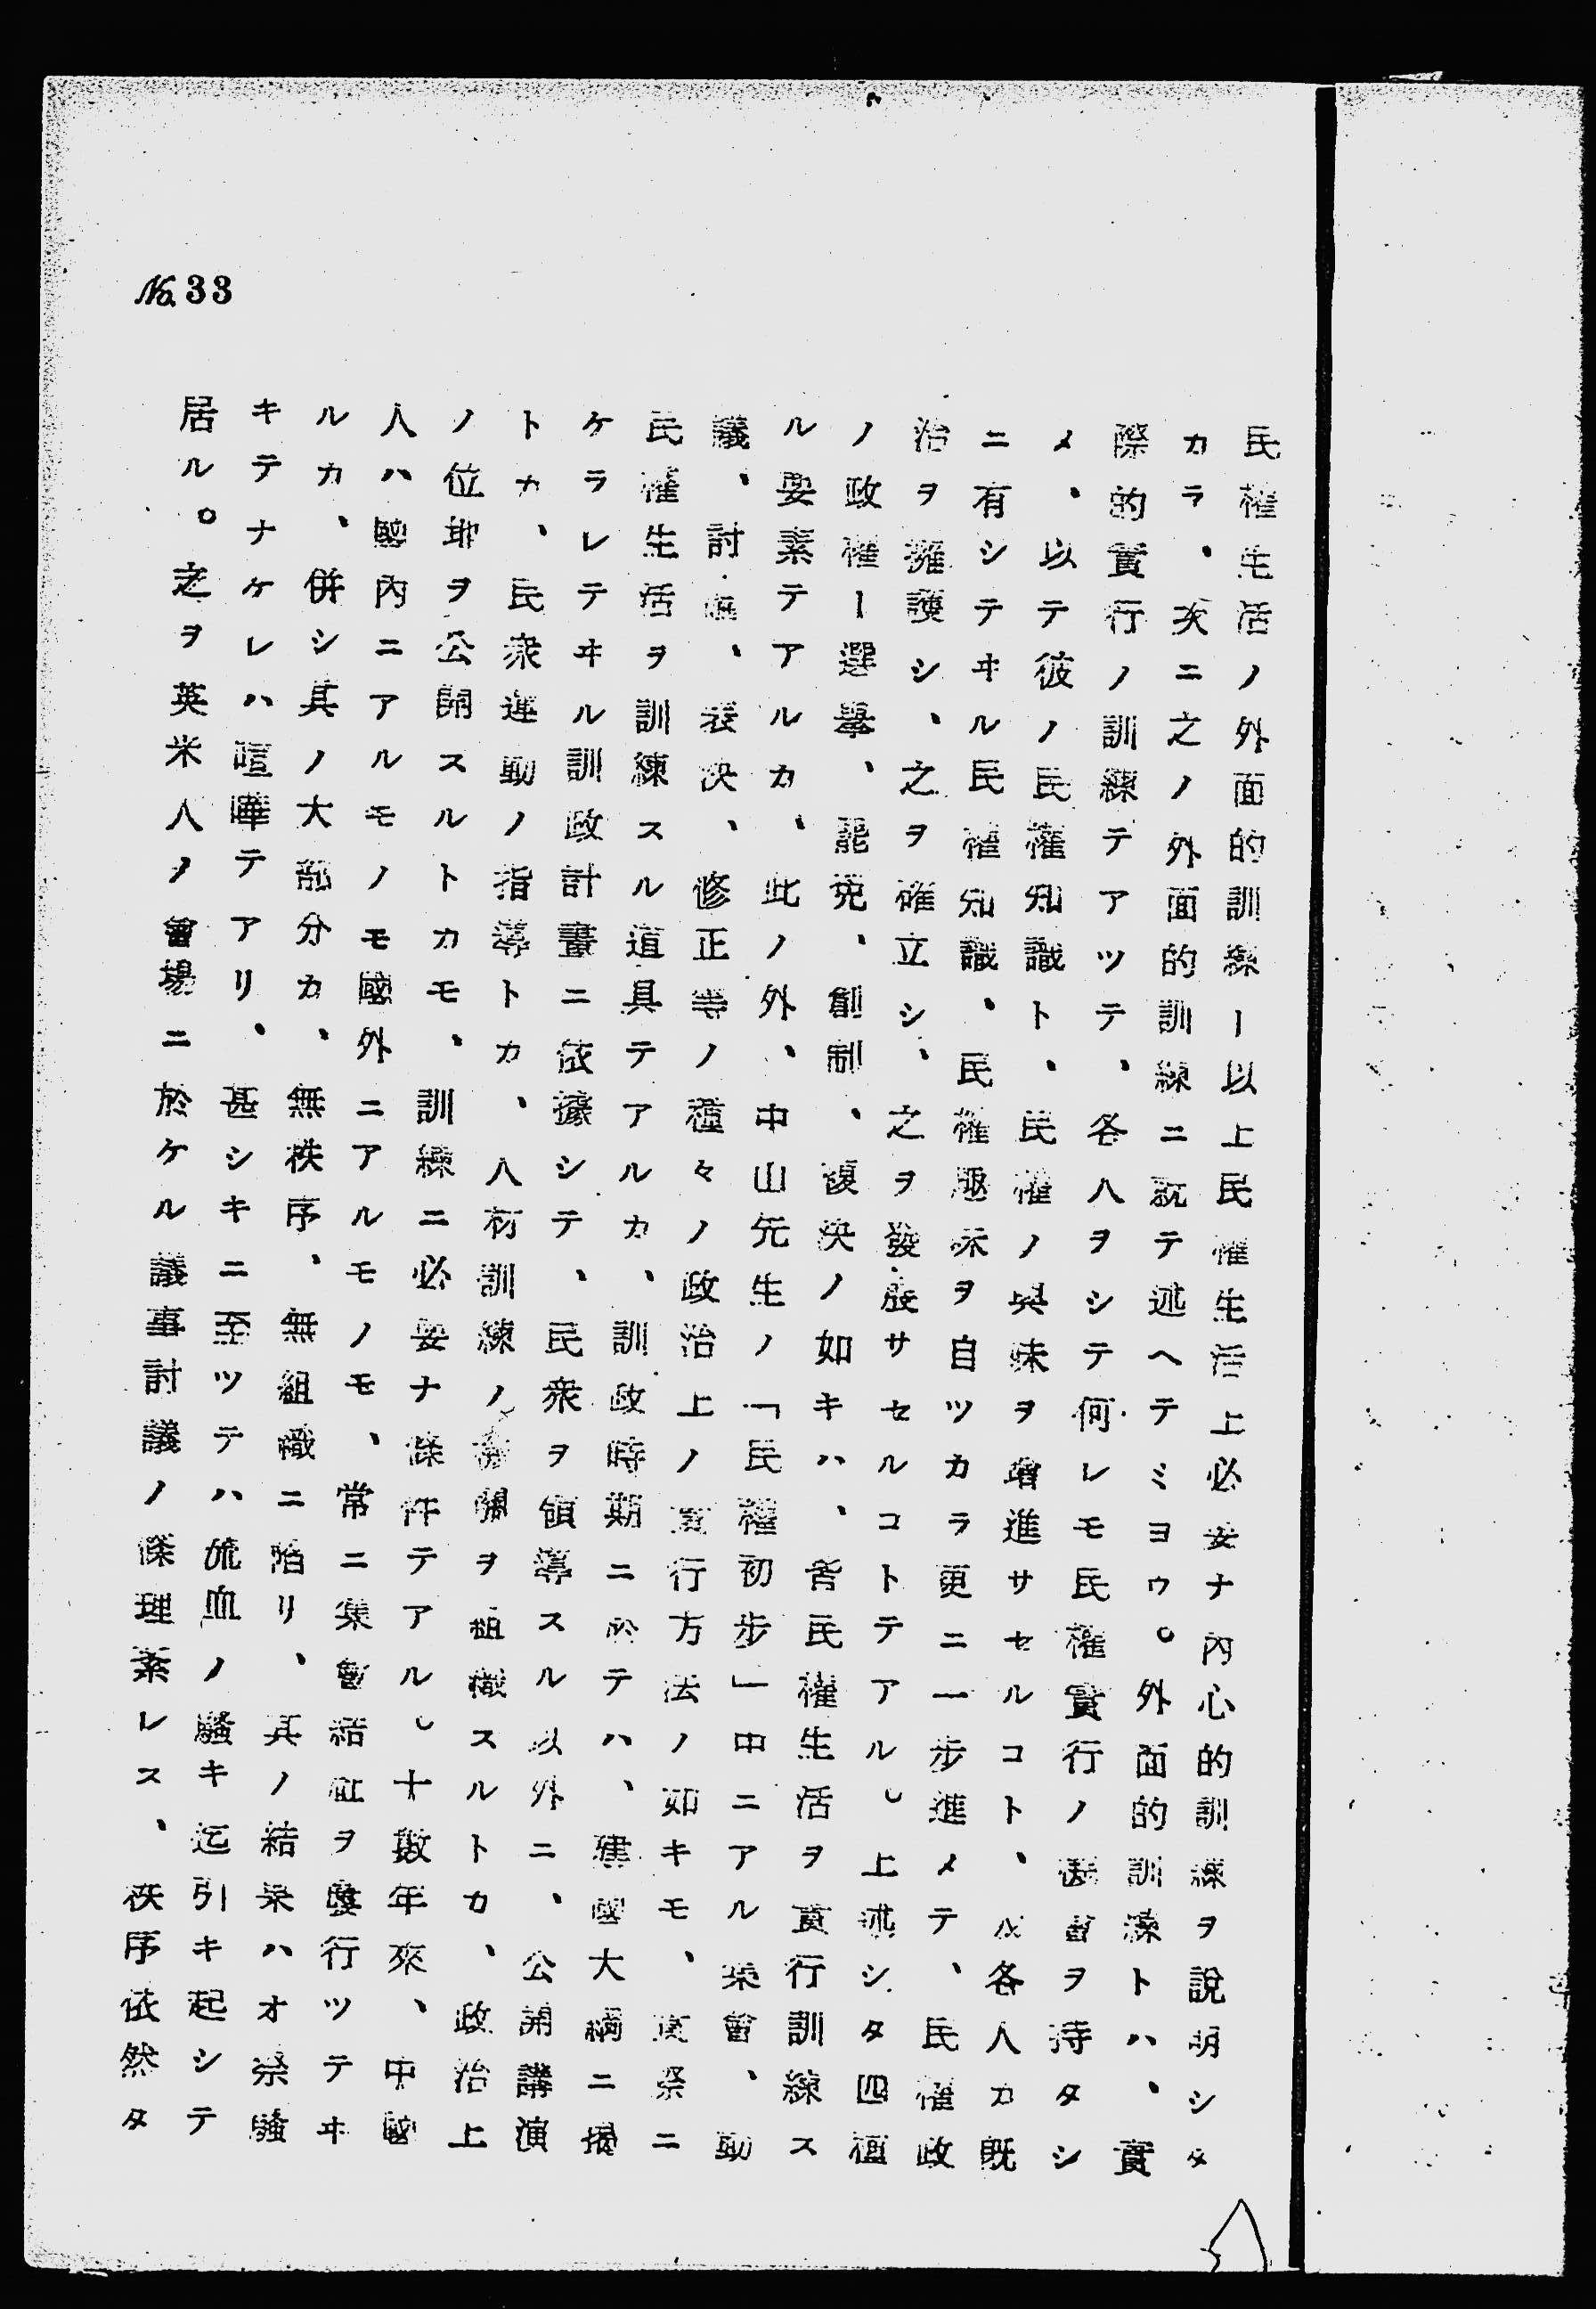 No.33
民權生活ノ外面的訓練ー以上民權生活上必要ナ內心的訓練ヲ說明シタ
カラ、次ニ之ノ外面的訓練ニ就テ述ヘテミヨウ。外面的訓練トハ、實
際的實行ノ訓練テアツテ、各人ヲシテ何レモ民權實行ノ機會ヲ持タシ
メ、以テ彼ノ民權知識ト、民權ノ興味ヲ增進サセルコト、及各人カ既
ニ有シテヰル民權知識、民權趣味ヲ自ツカラ更ニ一步進メテ、民權政
治ヲ擁護シ、之ヲ確立シ、之ヲ發展サセルコトテアル。上述シタ四種
ノ政權ー選擧、罷免、創制、複決ノ如キハ、皆民權生活ヲ實行訓練ス
ル要素テアルカ、此ノ外、中山先生ノ「民權初步」中ニアル集會、動
議、討論、表決、修正等ノ種々ノ政治上ノ實行方法ノ如キモ、實際ニ
民權生活ヲ訓練スル道具テアルカ、訓政時期ニ於テハ、建國大綱ニ揭
ケラレテヰル訓政計畫ニ依據シテ、民衆ヲ領導スル以外ニ、公開講演
トカ、民衆運動ノ指導トカ、人材訓練ノ機關ヲ組織スルトカ、政治上
ノ位地ヲ公開スルトカモ、訓練ニ必要ナ條件テアル。十數年來、中國
人ハ國內ニアルモノモ國外ニアルモノモ、常ニ集會結社ヲ擧行ツテヰ
ルカ、併シ其ノ大部分カ、無秩序、無組織ニ陷リ、其ノ結果ハオ祭騷
キテナケレハ喧嘩テアリ、甚シキニ至ツテハ流血ノ騷キ迄引キ起シテ
居ル。之ヲ英米人ノ會場ニ於ケル議事討議ノ條理紊レス、秩序依然タ